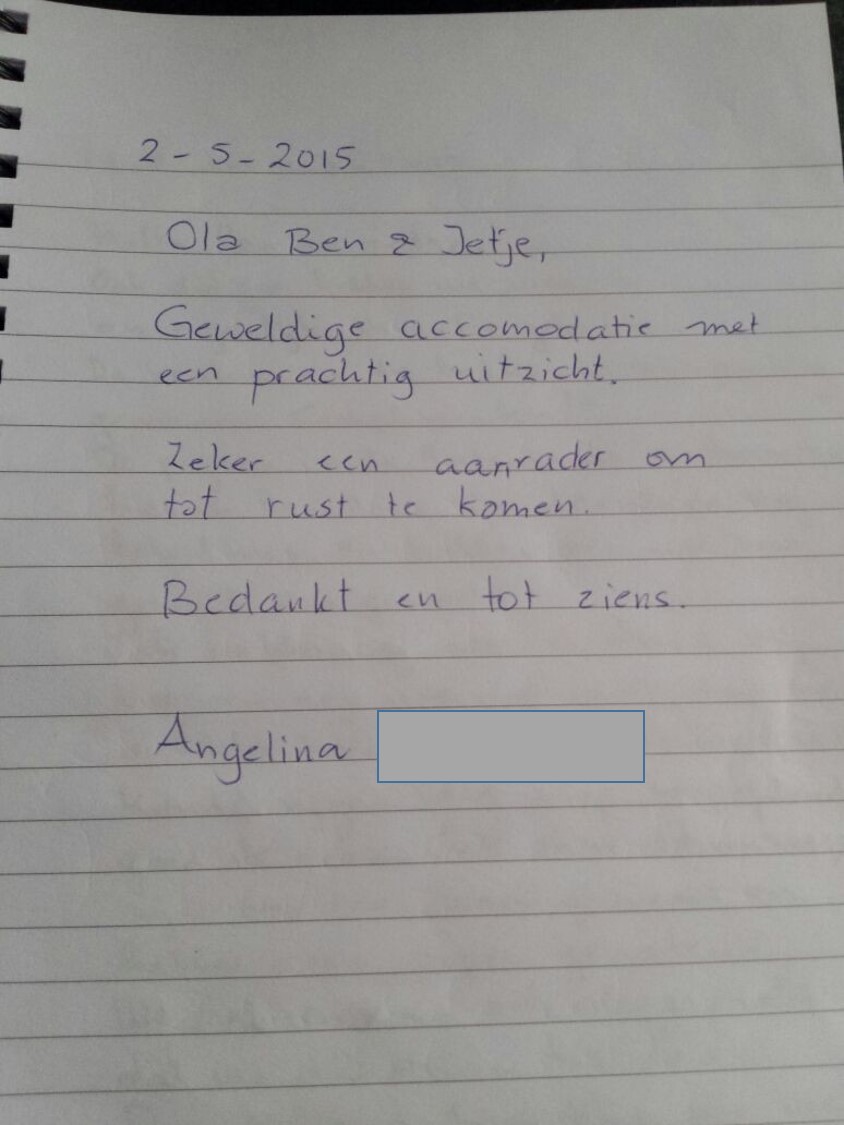 2 - 5 - 2015
Ola Ben & Jetje,
Geweldige accomodatie met
een prachtig uitzicht.
Zeker een aanrader om
tot rust te komen.
Bedankt en tot ziens.
Angelina